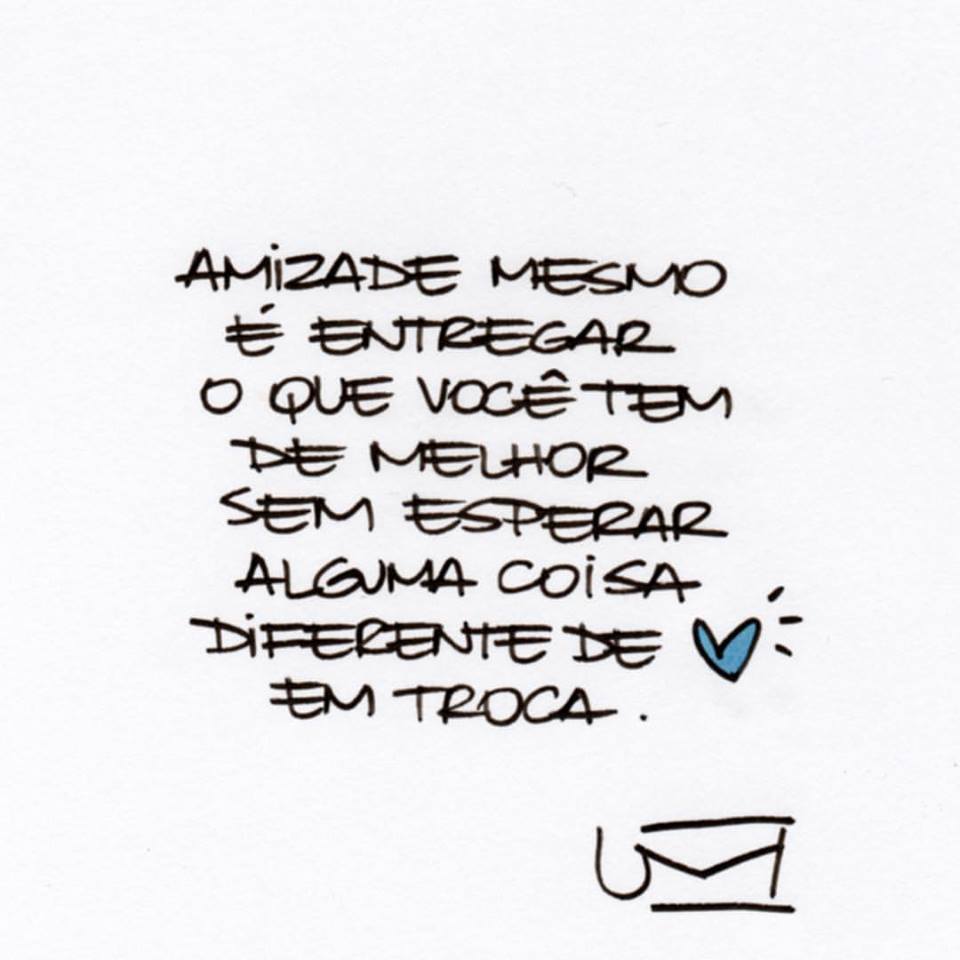 AMIZADE MESMO
É ENTREGAR
O QUE VOCÊ TEM
DE MELHOR
SEM ESPERAR
ALGUMA COISA
DIFERENTE DE
EM TROCA.